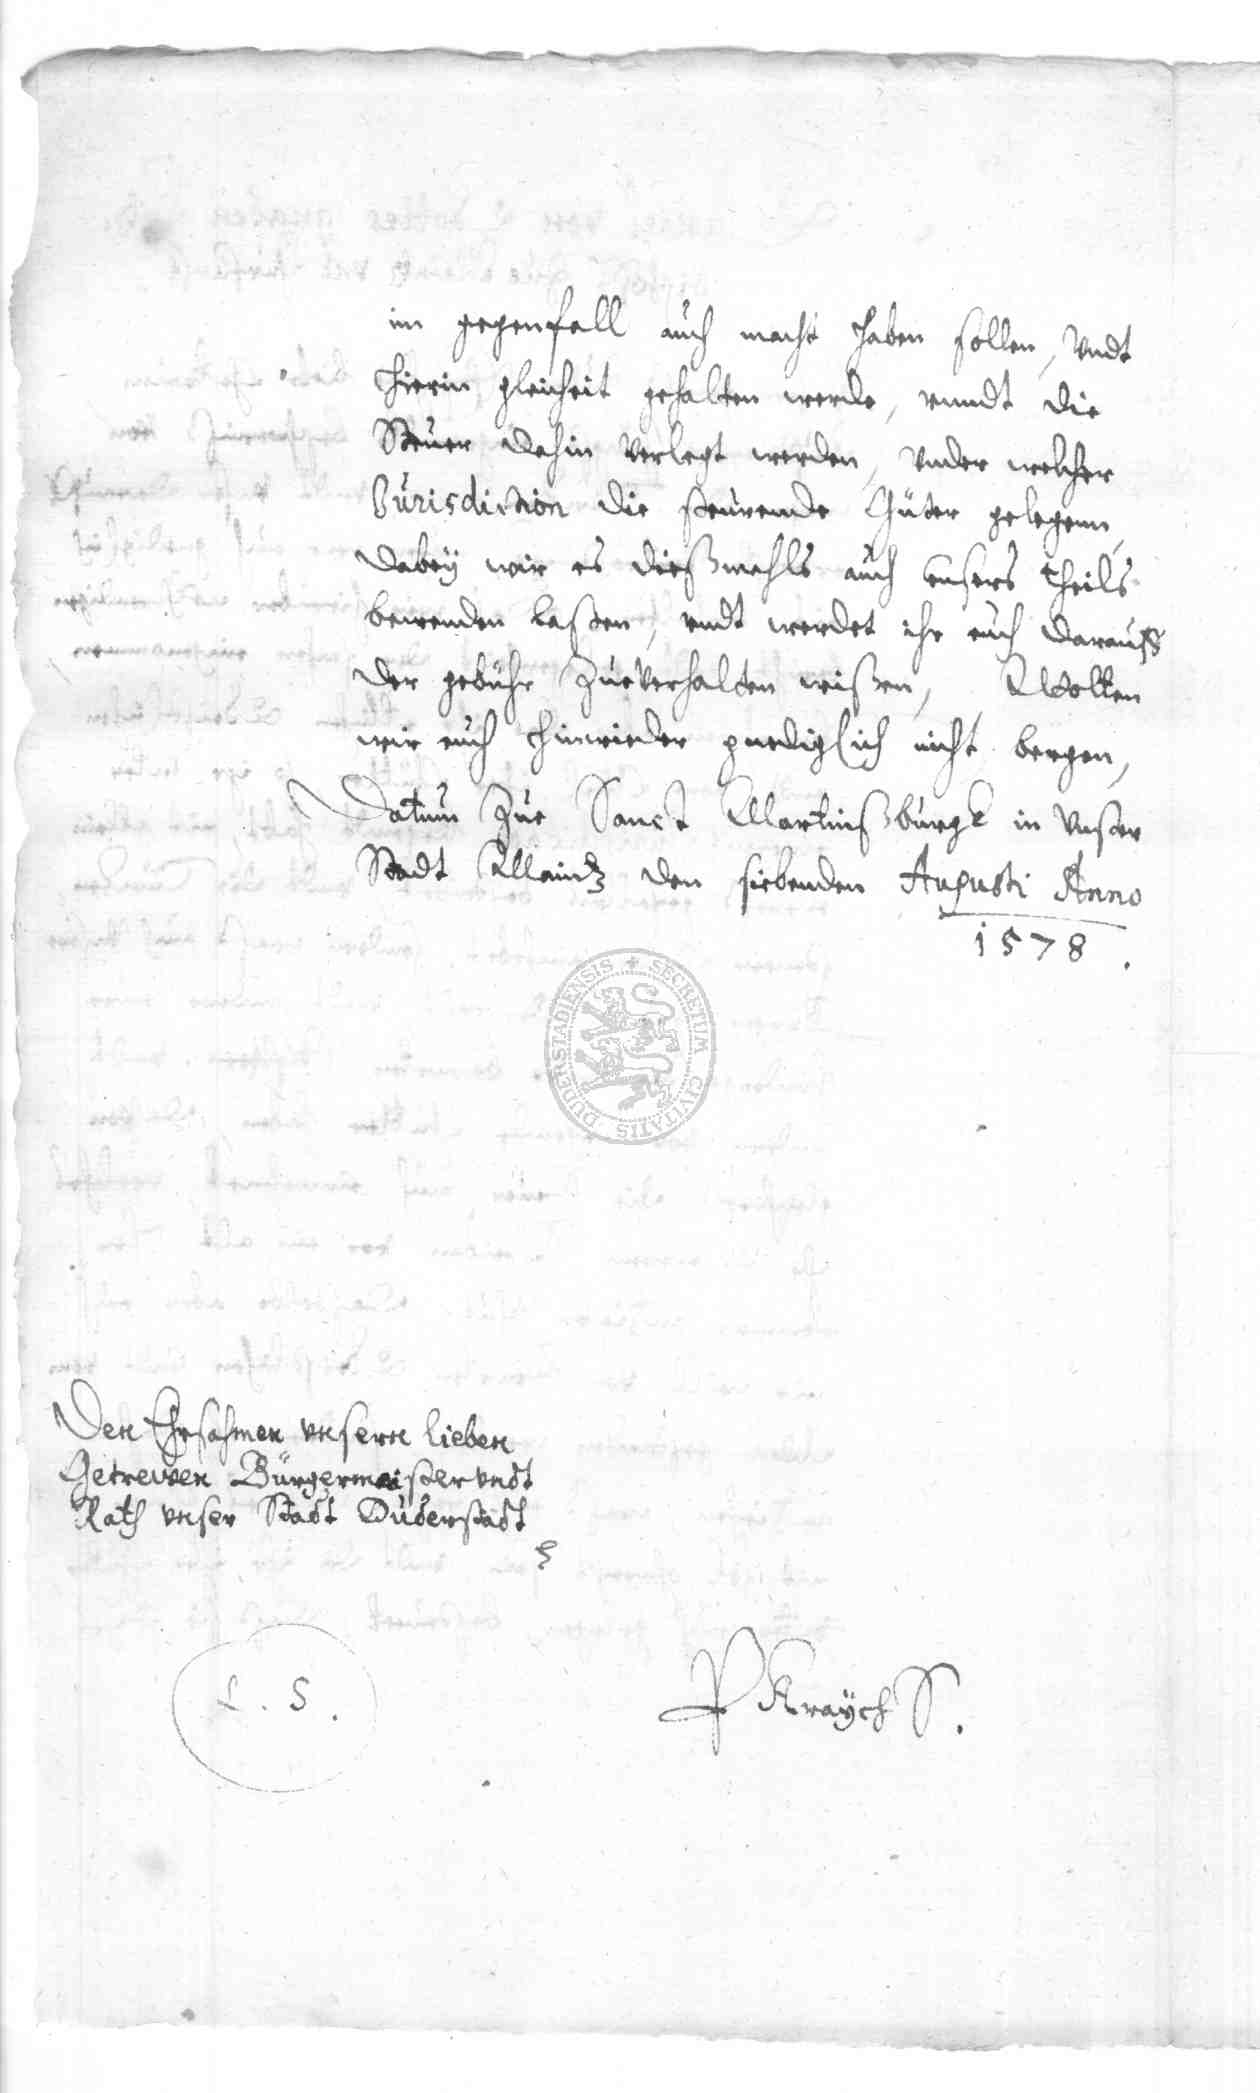 im gegenfall auch macht haben sollen, vndt
hierin gleicheit gehalten werde, vnndt die
Steuer dahin verlegt werden, vnder welcher
Jurisdiction die steurende Güter gelegenn,
dabey wir es dießmahls auch vnsers theils
bewenden laßen, vndt werdet ihr euch darauff
der gebühr zue verhalten wißen, Wolten
wir euch hinwieder gnediglich nicht bergen,
Datum zue Sanct Martinßburgk in vnser
Stadt Maintz den siebenden Augusti Anno
1578.
DUDERSTADIENSIS + SECRETUM CIVITATIS
Den Ehrsahmen vnsern lieben
Getrewen Bürgermeister vndt
Rath vnser Stadt Duderstadt
L. S.
P Kraych S.